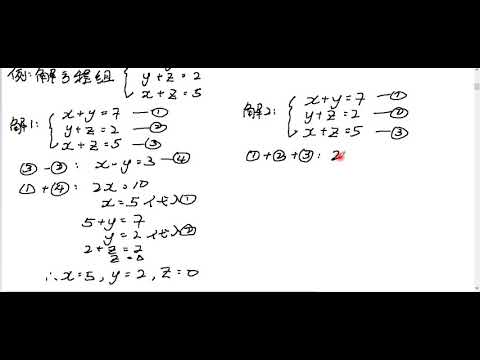 例:解方程组 {
y+z=2
x+z=5
解1: { x+y=7 —①
y+z=2 —②
x+z=5 —③
③-②: x-y=3 —④
①+④: 2x=10
x=5 代入①
5+y=7
y=2 代入②
2+z=2
z=0
∴x=5, y=2, z=0
解2: { x+y=7 —①
y+z=2 —②
x+z=5 —③
①+②+③: 2